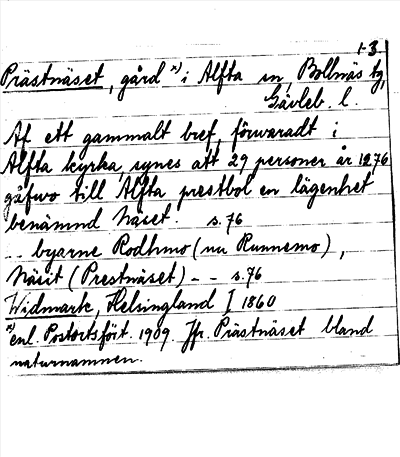 1-3
Prästnäset, gård x) i Alfta sn, Bollnäs tg,
Gävleb. l.
Af ett gammalt bref, förwaradt i
Alfta kyrka, synes att 29 personer år 1276
gåfwo till Alfta prestbol en lägenhet
benämnd Näset. s. 76
.. byarne Rodhmo (nu Runnemo),
Näsit (Prestnäset) - - s. 76
Widmark, Helsingland I 1860
x) enl. Postortsfört. 1909. Jfr. Prästnäset bland
naturnamnen.